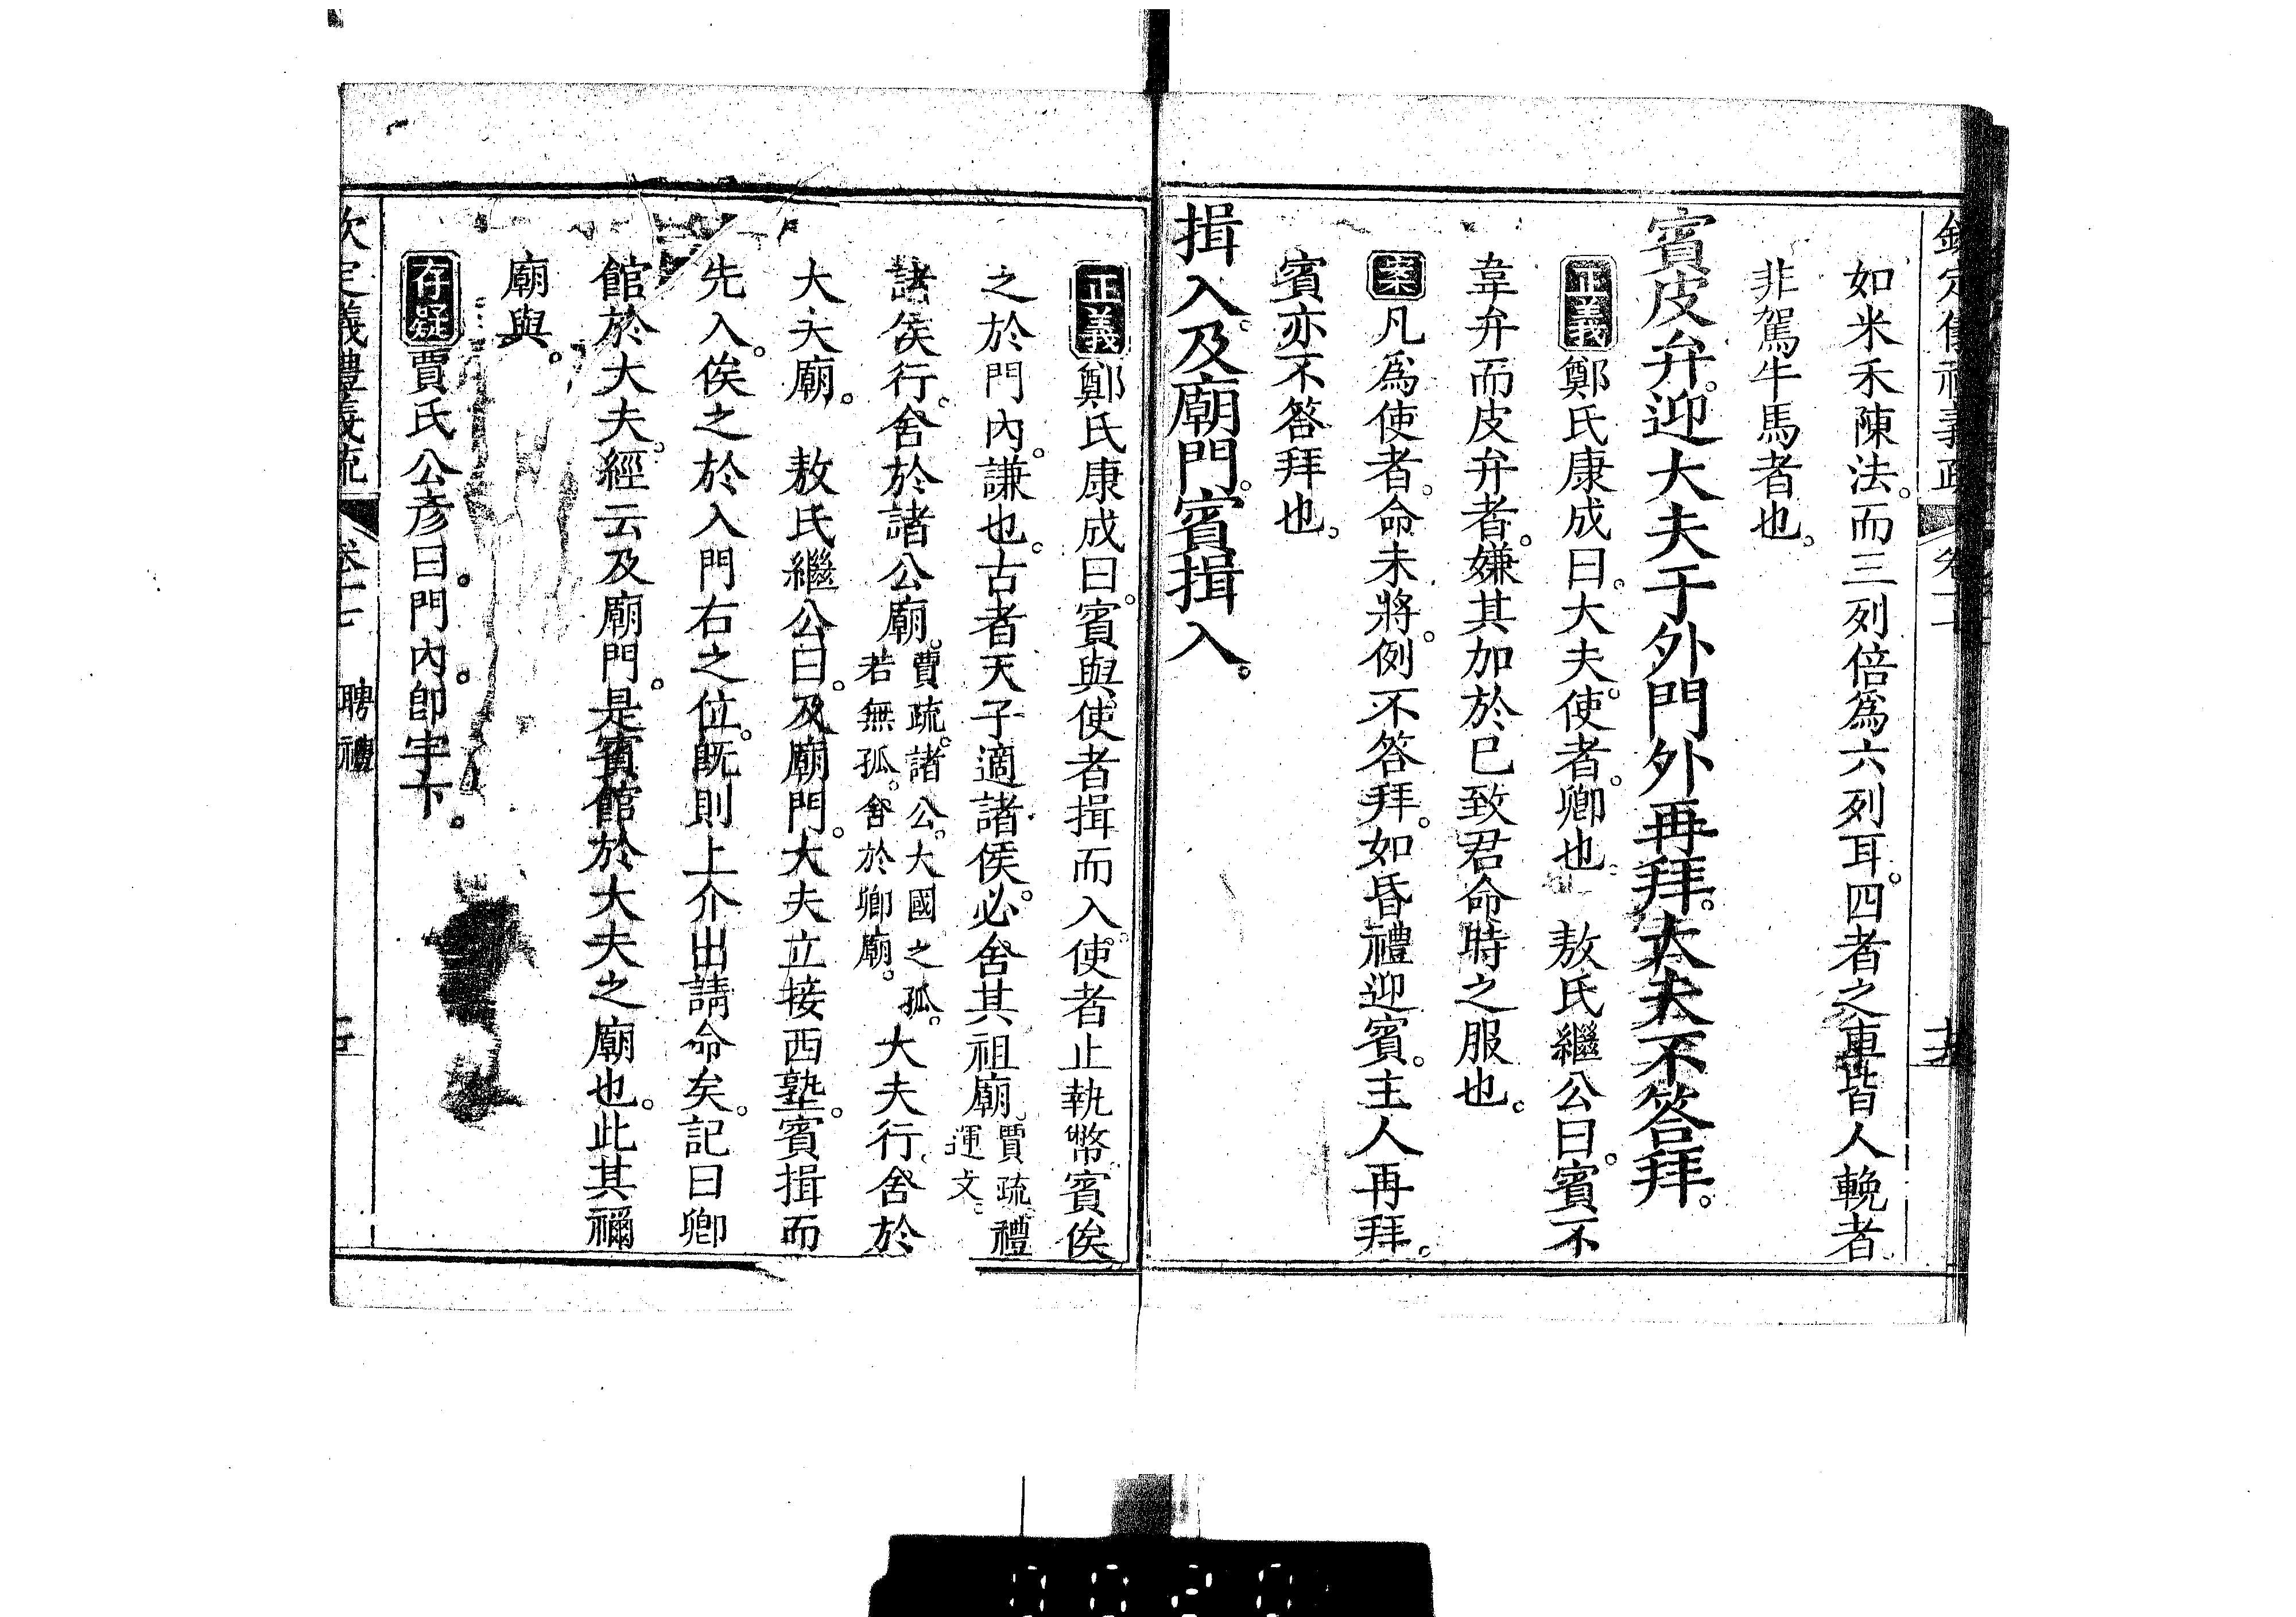 如米禾陳法。而三列倍爲六列耳。四者之車皆人輓者。
非駕牛馬者也。
賓皮弁。迎大夫于外門外再拜。大夫不答拜。
正義鄭氏康成曰。大夫。使者。卿也。　敖氏繼公曰。賓不
韋弁而皮弁者。嫌其加於已致君命時之服也。
案凡爲使者。命未將。例不答拜。如昏禮迎賓。主人再拜。
賓亦不答拜也。
揖入。及廟門。賓揖入。
正義鄭氏康成曰。賓與使者揖而入。使者止執幣賓俟
之於門內。謙也。古者天子適諸侯。必舍其祖廟。賈疏。禮
運文。
諸侯行。舍於諸公廟。賈疏。諸公。大國之孤。
若無孤。舍於卿廟。大夫行。舍於
大夫廟。　敖氏繼公曰。及廟門。大夫立接西塾。賓揖而
先入。俟之於入門右之位。旣則上介出請命矣。記曰卿
館於大夫。經云及廟門。是賓館於大夫之廟也。此其禰
廟與。
存疑賈氏公彥曰。門內。卽宇下。
欽定義禮義疏　卷十七　聘禮